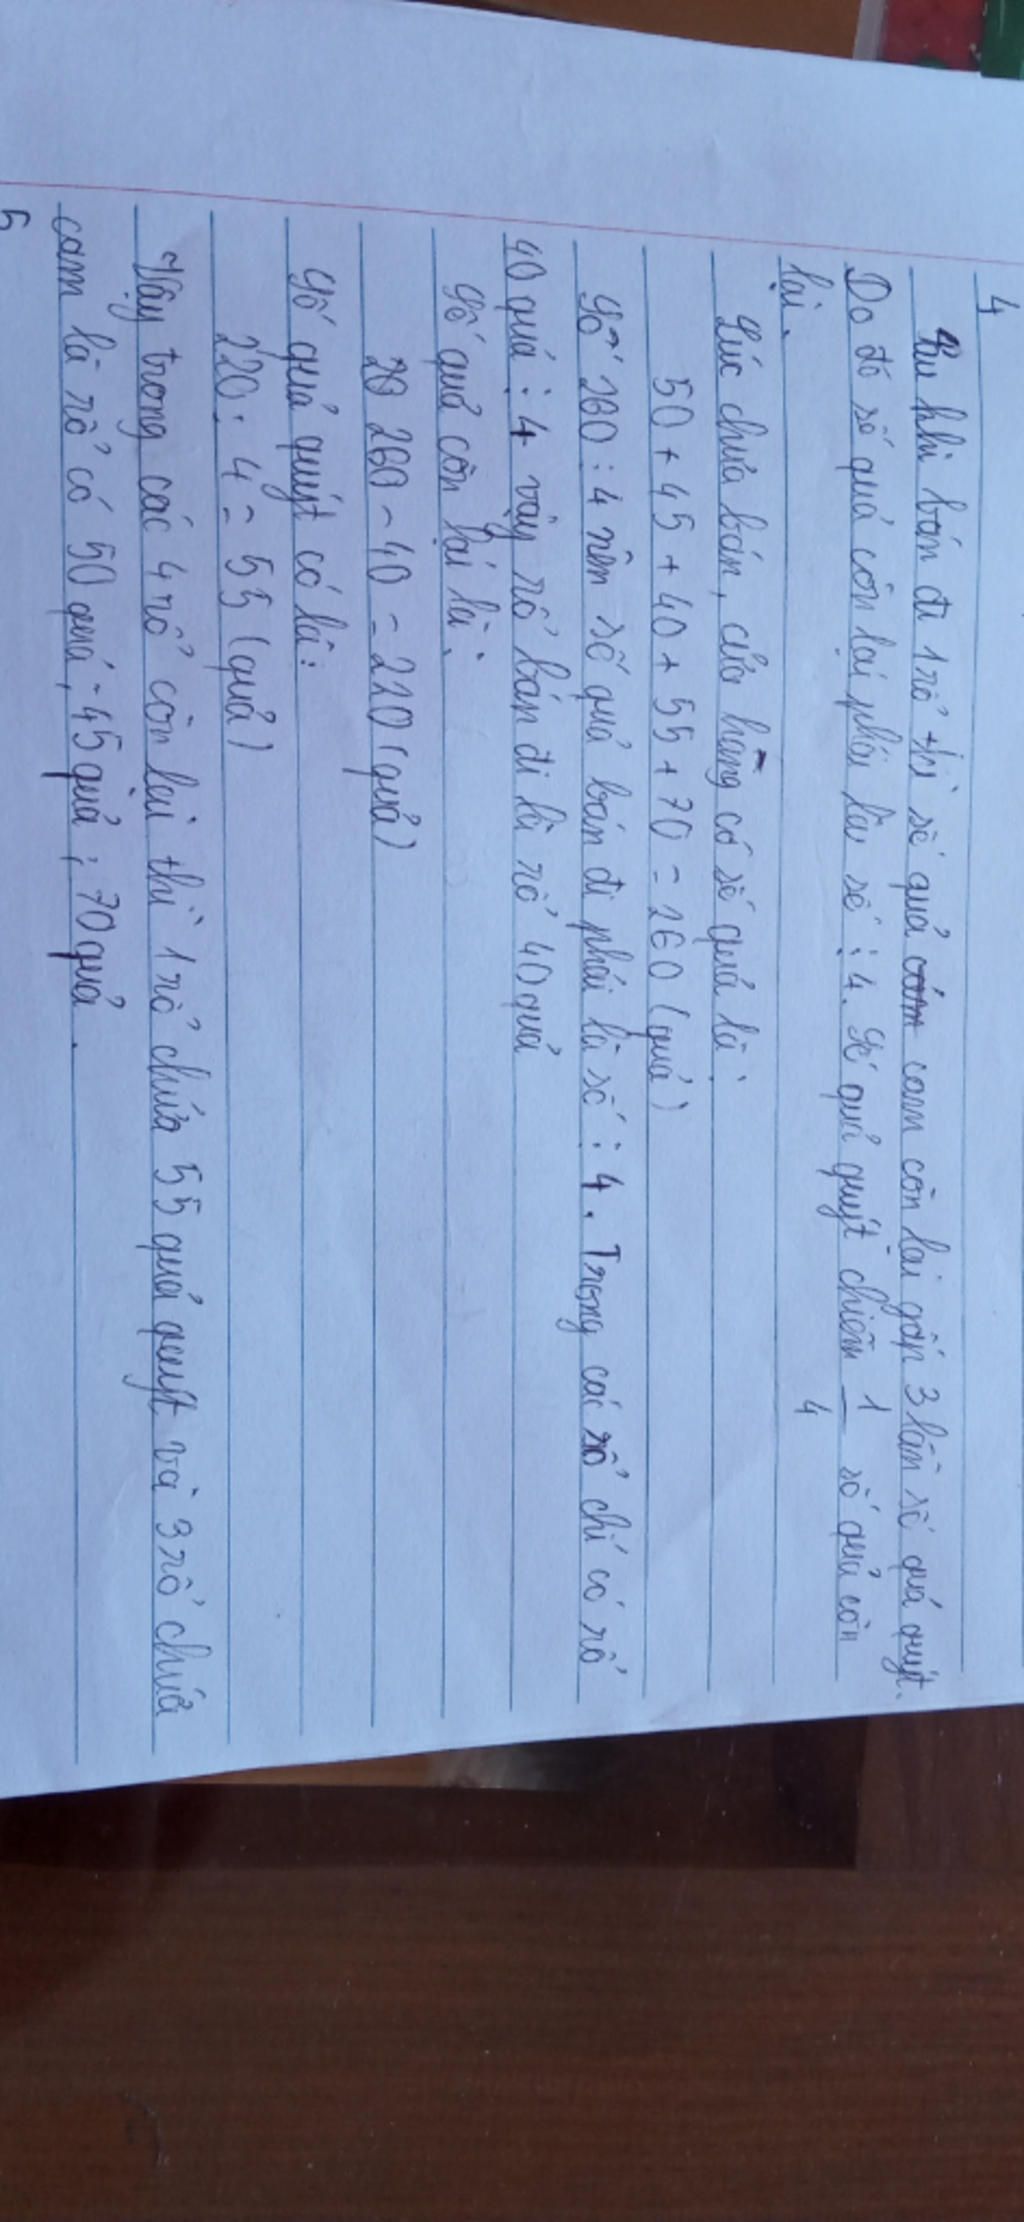 4
Sau khi bán đi 1 rổ thì số quả cam còn lại gấp 3 lần số quả quýt.
Do đó số quả còn lại phải là số ⋮ 4. Số quả quýt chiếm 1/4 số quả còn
lại.
Lúc chưa bán, cửa hàng có số quả là:
50 + 45 + 40 + 55 + 70 = 260 (quả)
Số 260 ⋮ 4 nên số quả bán đi phải là số ⋮ 4. Trong các rổ chỉ có rổ
40 quả ⋮ 4 vậy rổ bán đi là rổ 40 quả
Số quả còn lại là:
260 - 40 = 220 (quả)
Số quả quýt có là:
220 : 4 = 55 (quả)
Vậy trong các 4 rổ còn lại thì 1 rổ chứa 55 quả quýt và 3 rổ chứa
cam là rổ có 50 quả; 45 quả; 70 quả.
5